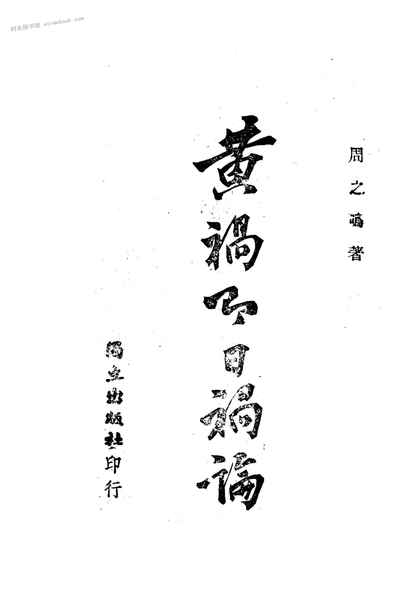 周之鳴著
黃禍即日禍論
獨立出版社印行